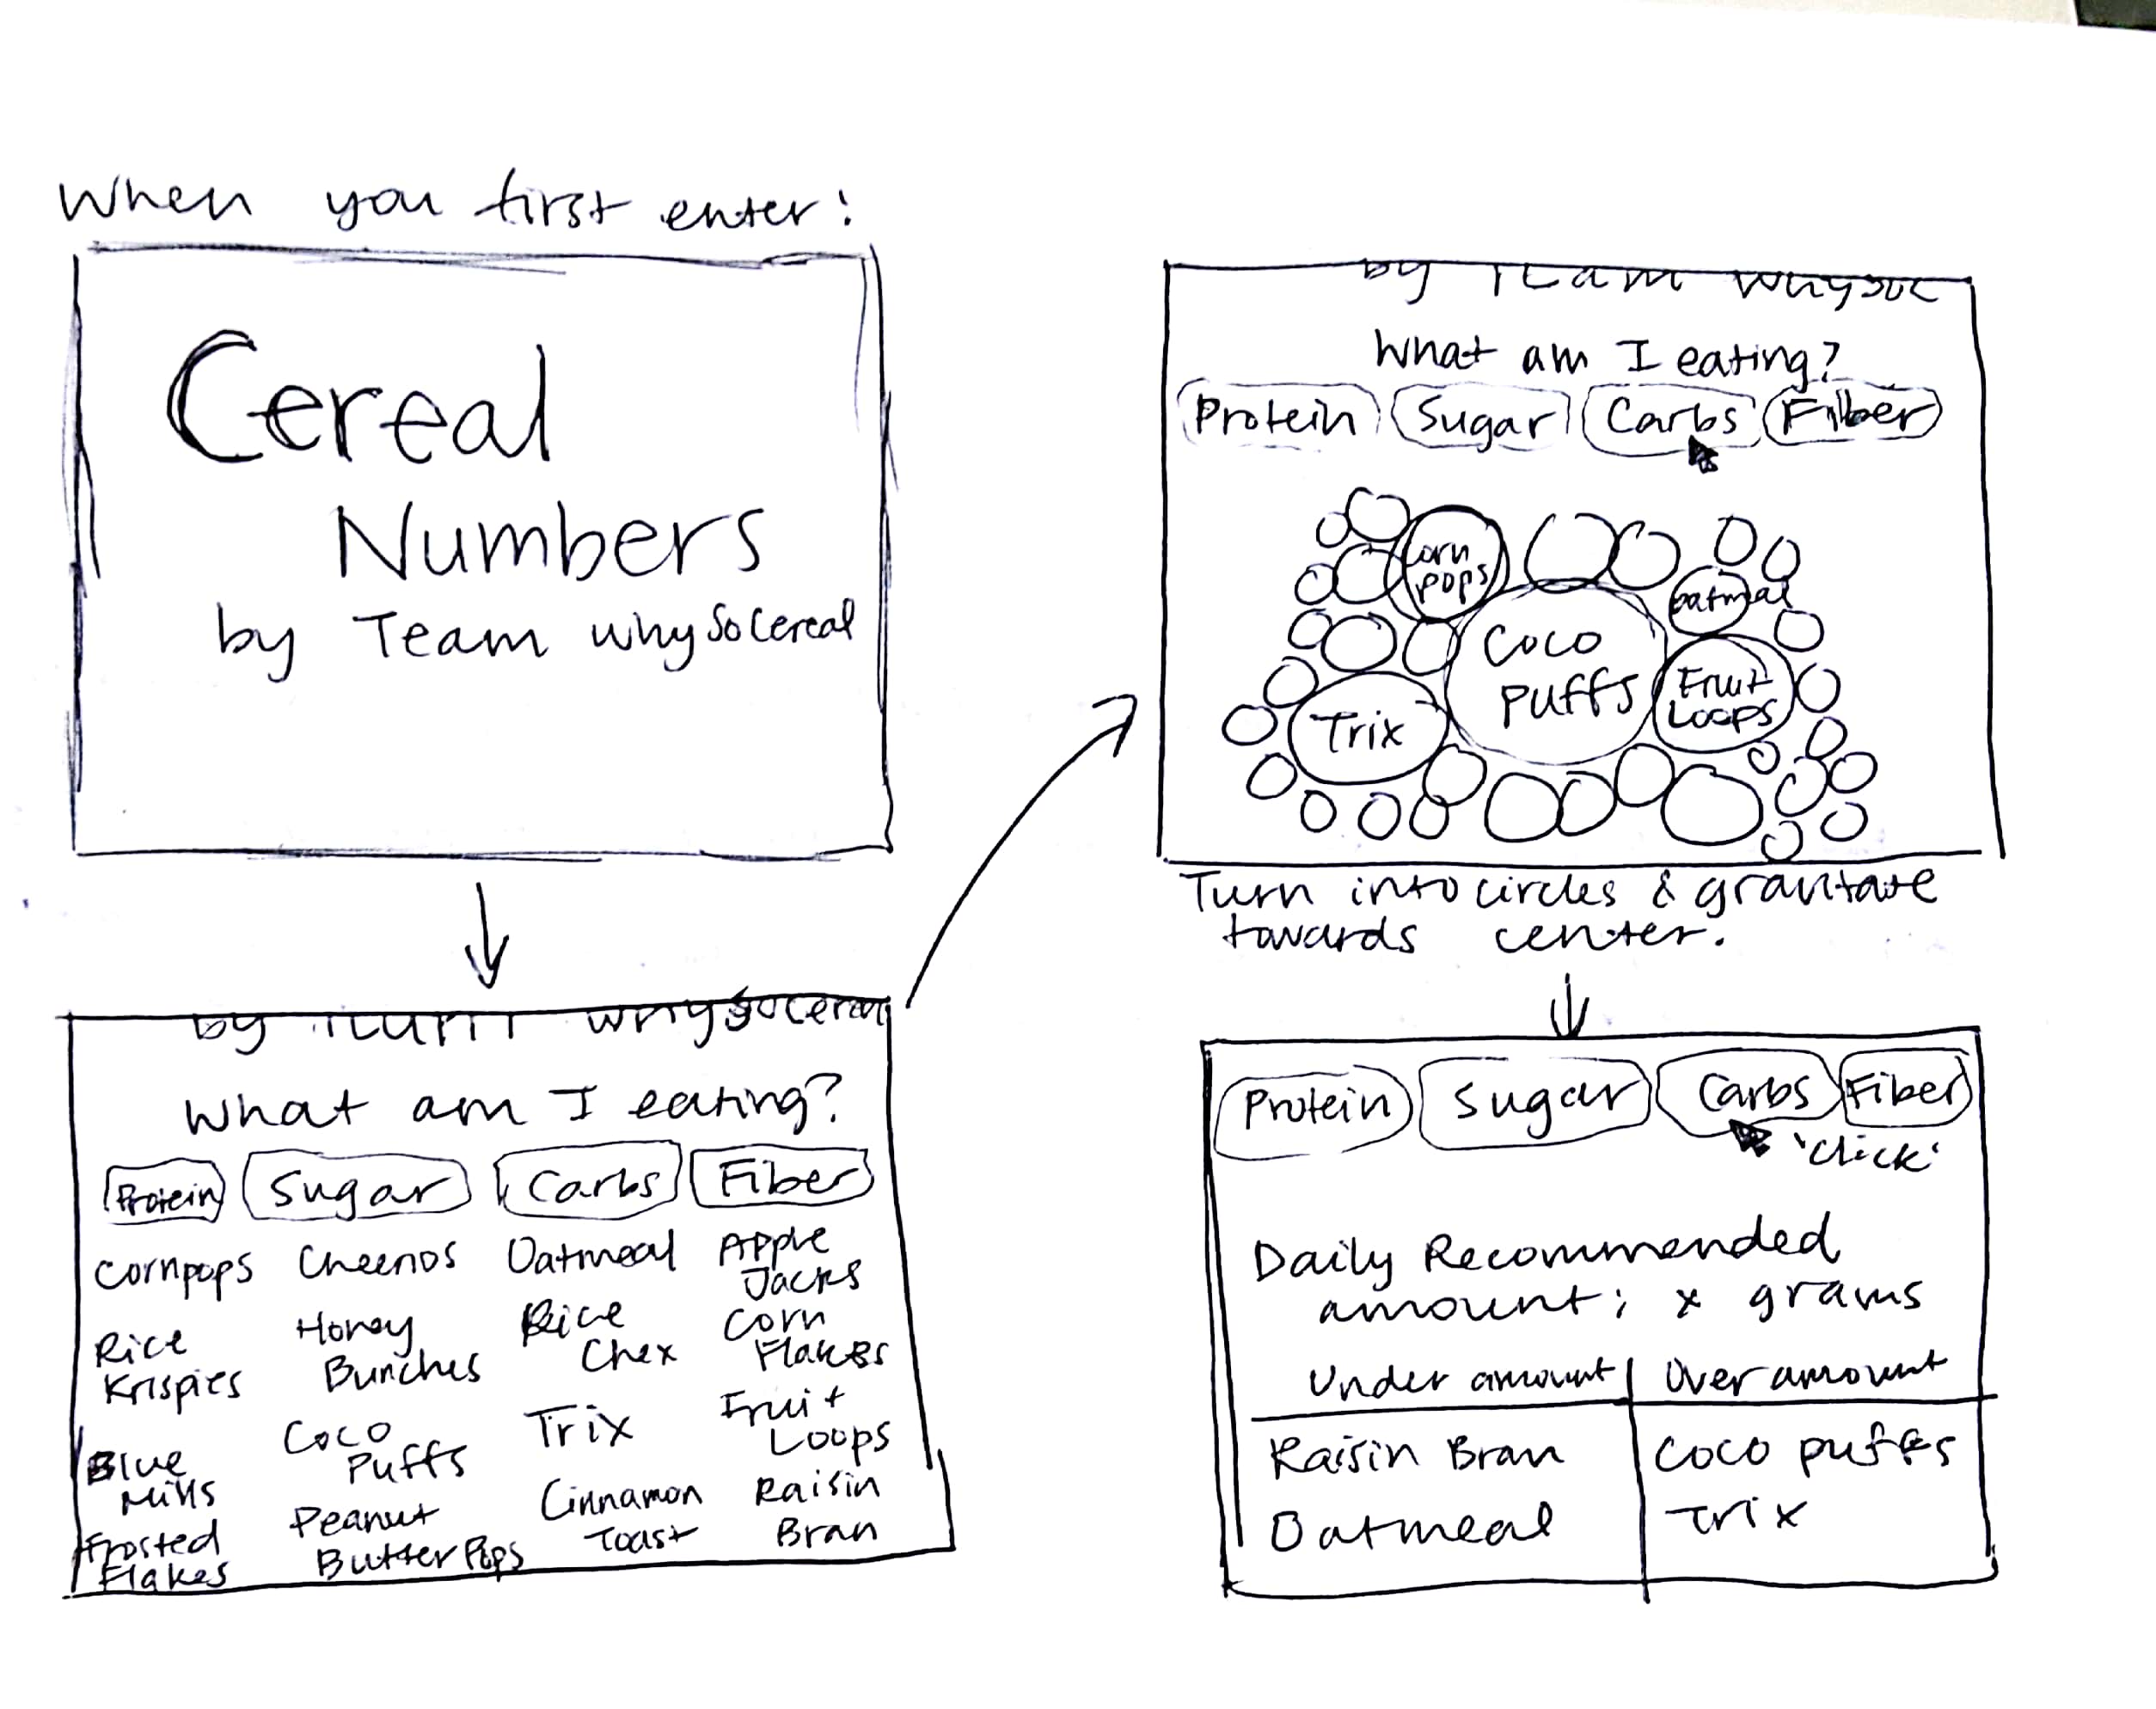 When you first enter:
Cereal
Numbers
by Team whysocereal
by Team whysocereal
What am I eating?
Protein Sugar Carbs Fiber
Cornpops Cheerios Oatmeal Apple Jacks
Rice Krispies Honey Bunches Rice Chex Corn Flakes
Blue Mills Coco Puffs Trix Fruit Loops
Frosted Flakes Peanut Butter Pops Cinnamon Toast Raisin Bran
by Team whysoc
What am I eating?
Protein Sugar Carbs Fiber
Corn pops
Oatmeal
Coco Puffs
Fruit Loops
Trix
Turn into circles & gravitate
towards center.
Protein Sugar Carbs Fiber
'click'
Daily Recommended
amount: x grams
Under amount Over amount
Raisin Bran Coco puffs
Oatmeal Trix